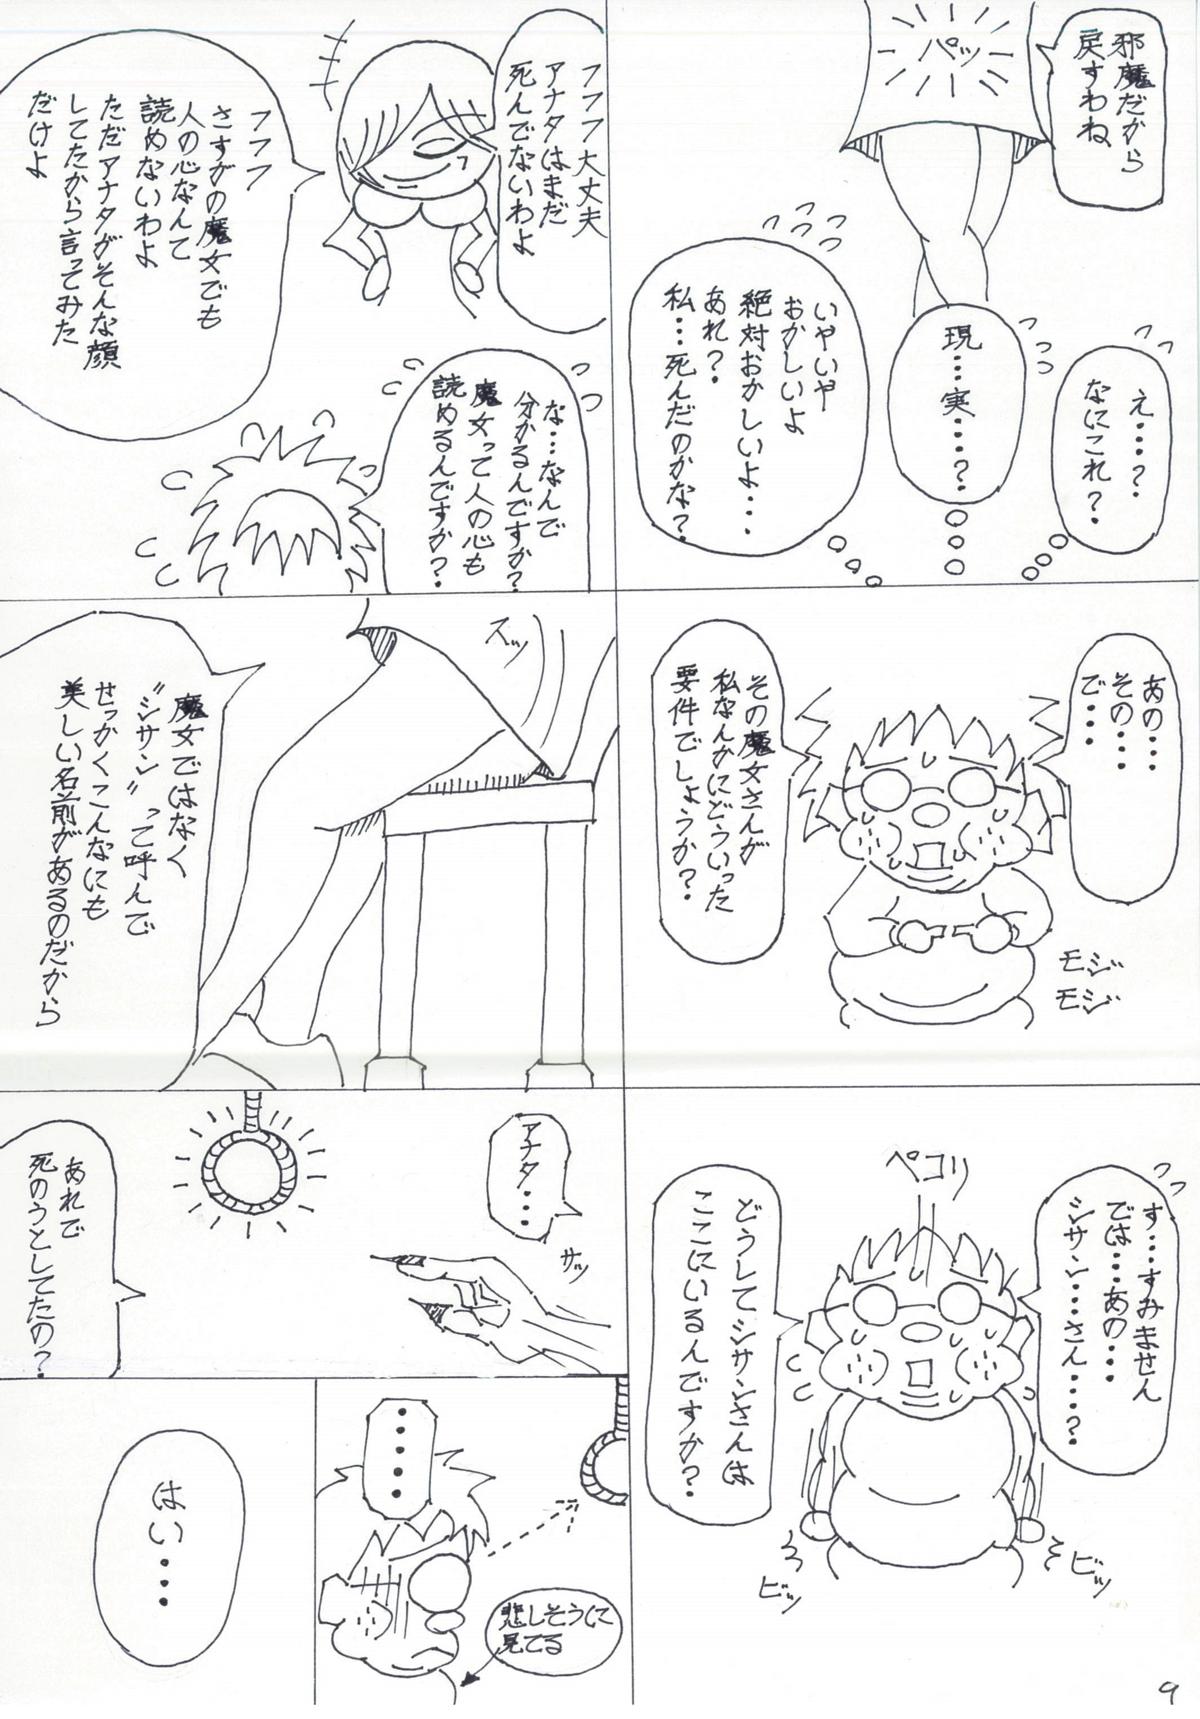 邪魔だから
戻すわね
パッ
え・・・?
なにこれ?
現・・・実・・・?
いやいや
おかしいよ
絶対おかしいよ・・・
あれ?
私・・・死んだのかな?
フフフ大丈夫
アナタはまだ
死んでないわよ
な・・・なんで
分かるんですか?
魔女って人の心も
読めるんですか?
フフフ
さすがの魔女でも
人の心なんて
読めないわよ
ただアナタがそんな顔
してたから言ってみた
だけよ
あの・・・
その・・・
で・・・
その魔女さんが
私なんかにどういった
要件でしょうか?
モジ
モジ
スッ
魔女ではなく
"シサン"って呼んで
せっかくこんなにも
美しい名前があるのだから
す・・・すみません
では・・・あの・・・
シサン・・・さん・・・・?
ペコリ
どうしてシサンさんは
ここにいるんですか?
ビッ
ビッ
アナタ・・・
サッ
あれで
死のうとしてたの?
・・・・・
悲しそうに
見てる
はい・・・・
9